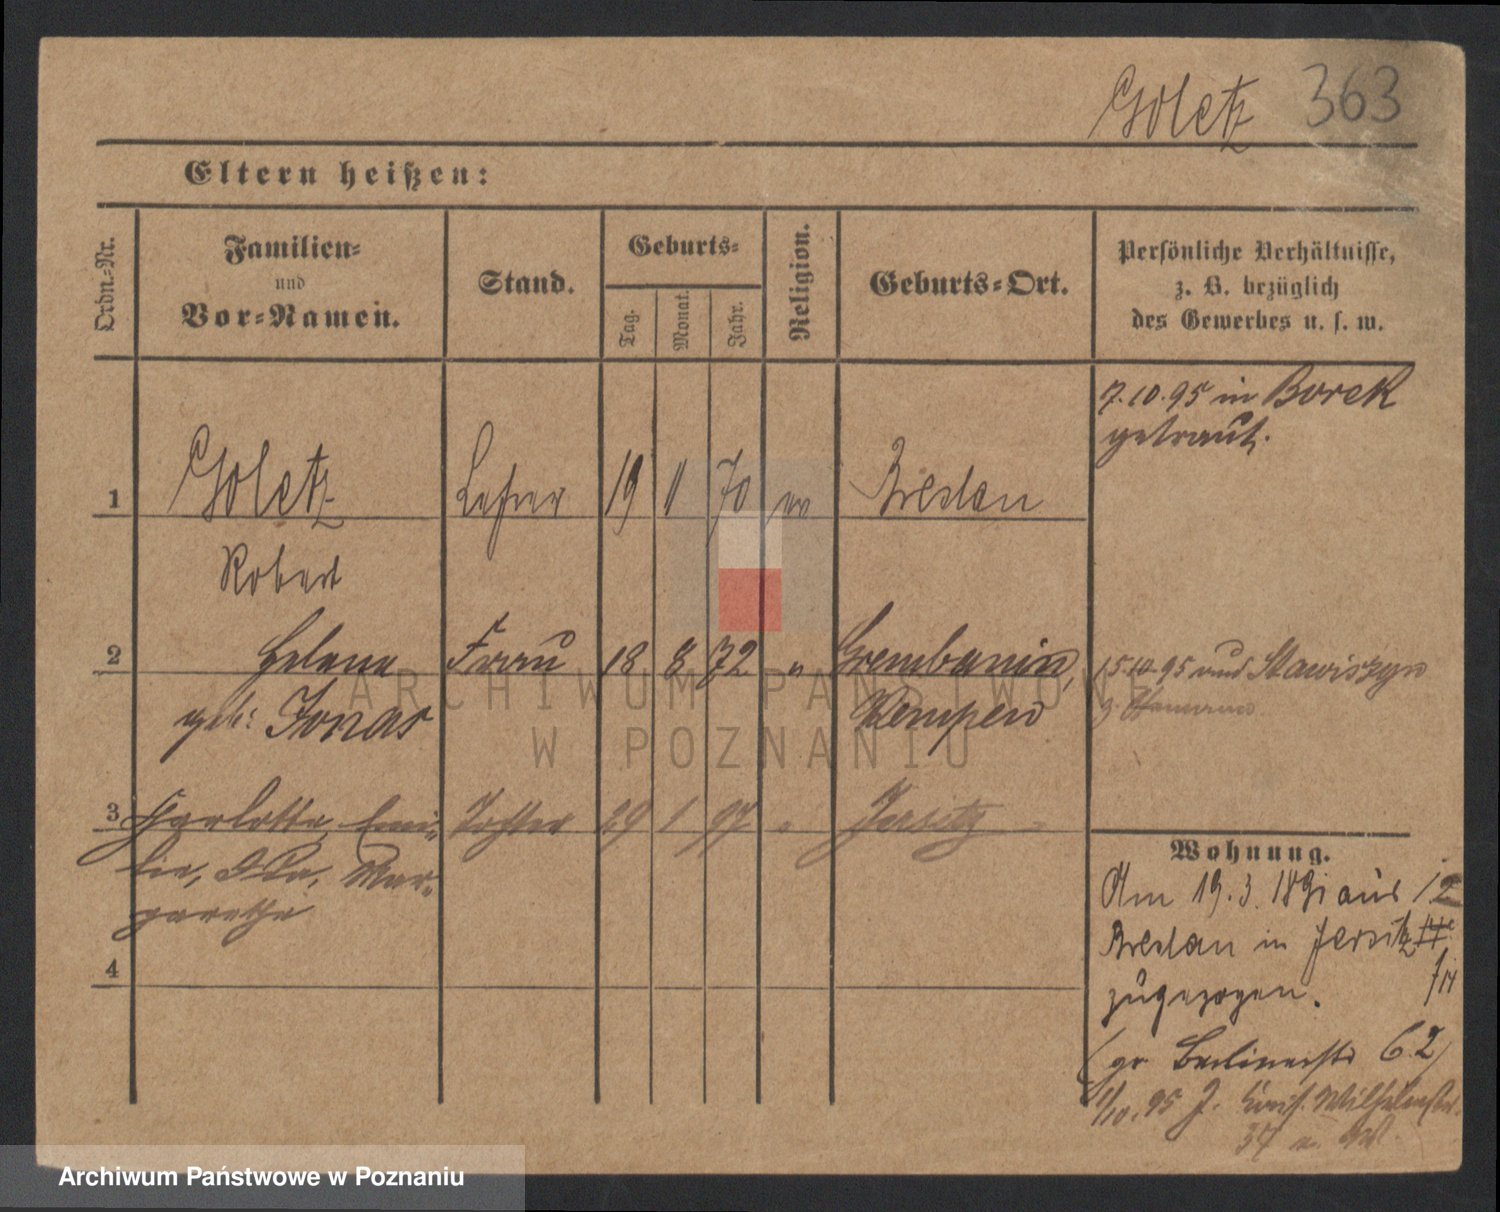 Goletz 363
Eltern heißen:
Ordn.-Nr.
Familien-
und
Vor-Namen.
Stand.
Geburts-
Tag.
Monat.
Jahr.
Religion.
Geburts-Ort.
Persönliche Verhältnisse,
z. B. bezüglich
des Gewerbes u. s. w.
7.10.95 in Borek
getraut.
1 Goletz Lehrer 19 11 70 ev Breslau
Robert
2 Helene Frau 18 8 72 " Grembanin, 15.10.95 aus Stawiszyn
geb. Jonas Kempen
3 Charlotte, Emi- Tochter 29 1 97 " Jersitz
lie, Ida, Mar-
garethe
4
Wohnung.
Am 19.3. 1891 aus 12
Breslau in Jersitz
zugezogen.
(gr Berlinerstr 62)
1/10.95 J. Kais. Wilhelmstr.
37
ARCHIWUM PAŃSTWOWE
W POZNANIU
Archiwum Państwowe w Poznaniu